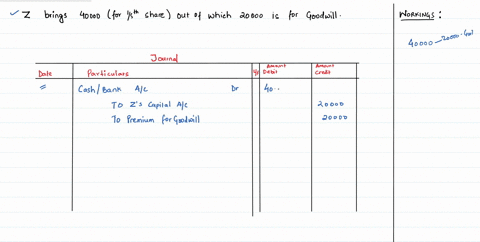 ✓ Z brings 40000 (for 1/5th share) out of which 20000 is for Goodwill.
WORKINGS :
40000 20000
Journal
Date Particulars Amount Debit Amount Credit
Cash/Bank A/c Dr 40..
To Z's Capital A/c 20000
To Premium for Goodwill 20000